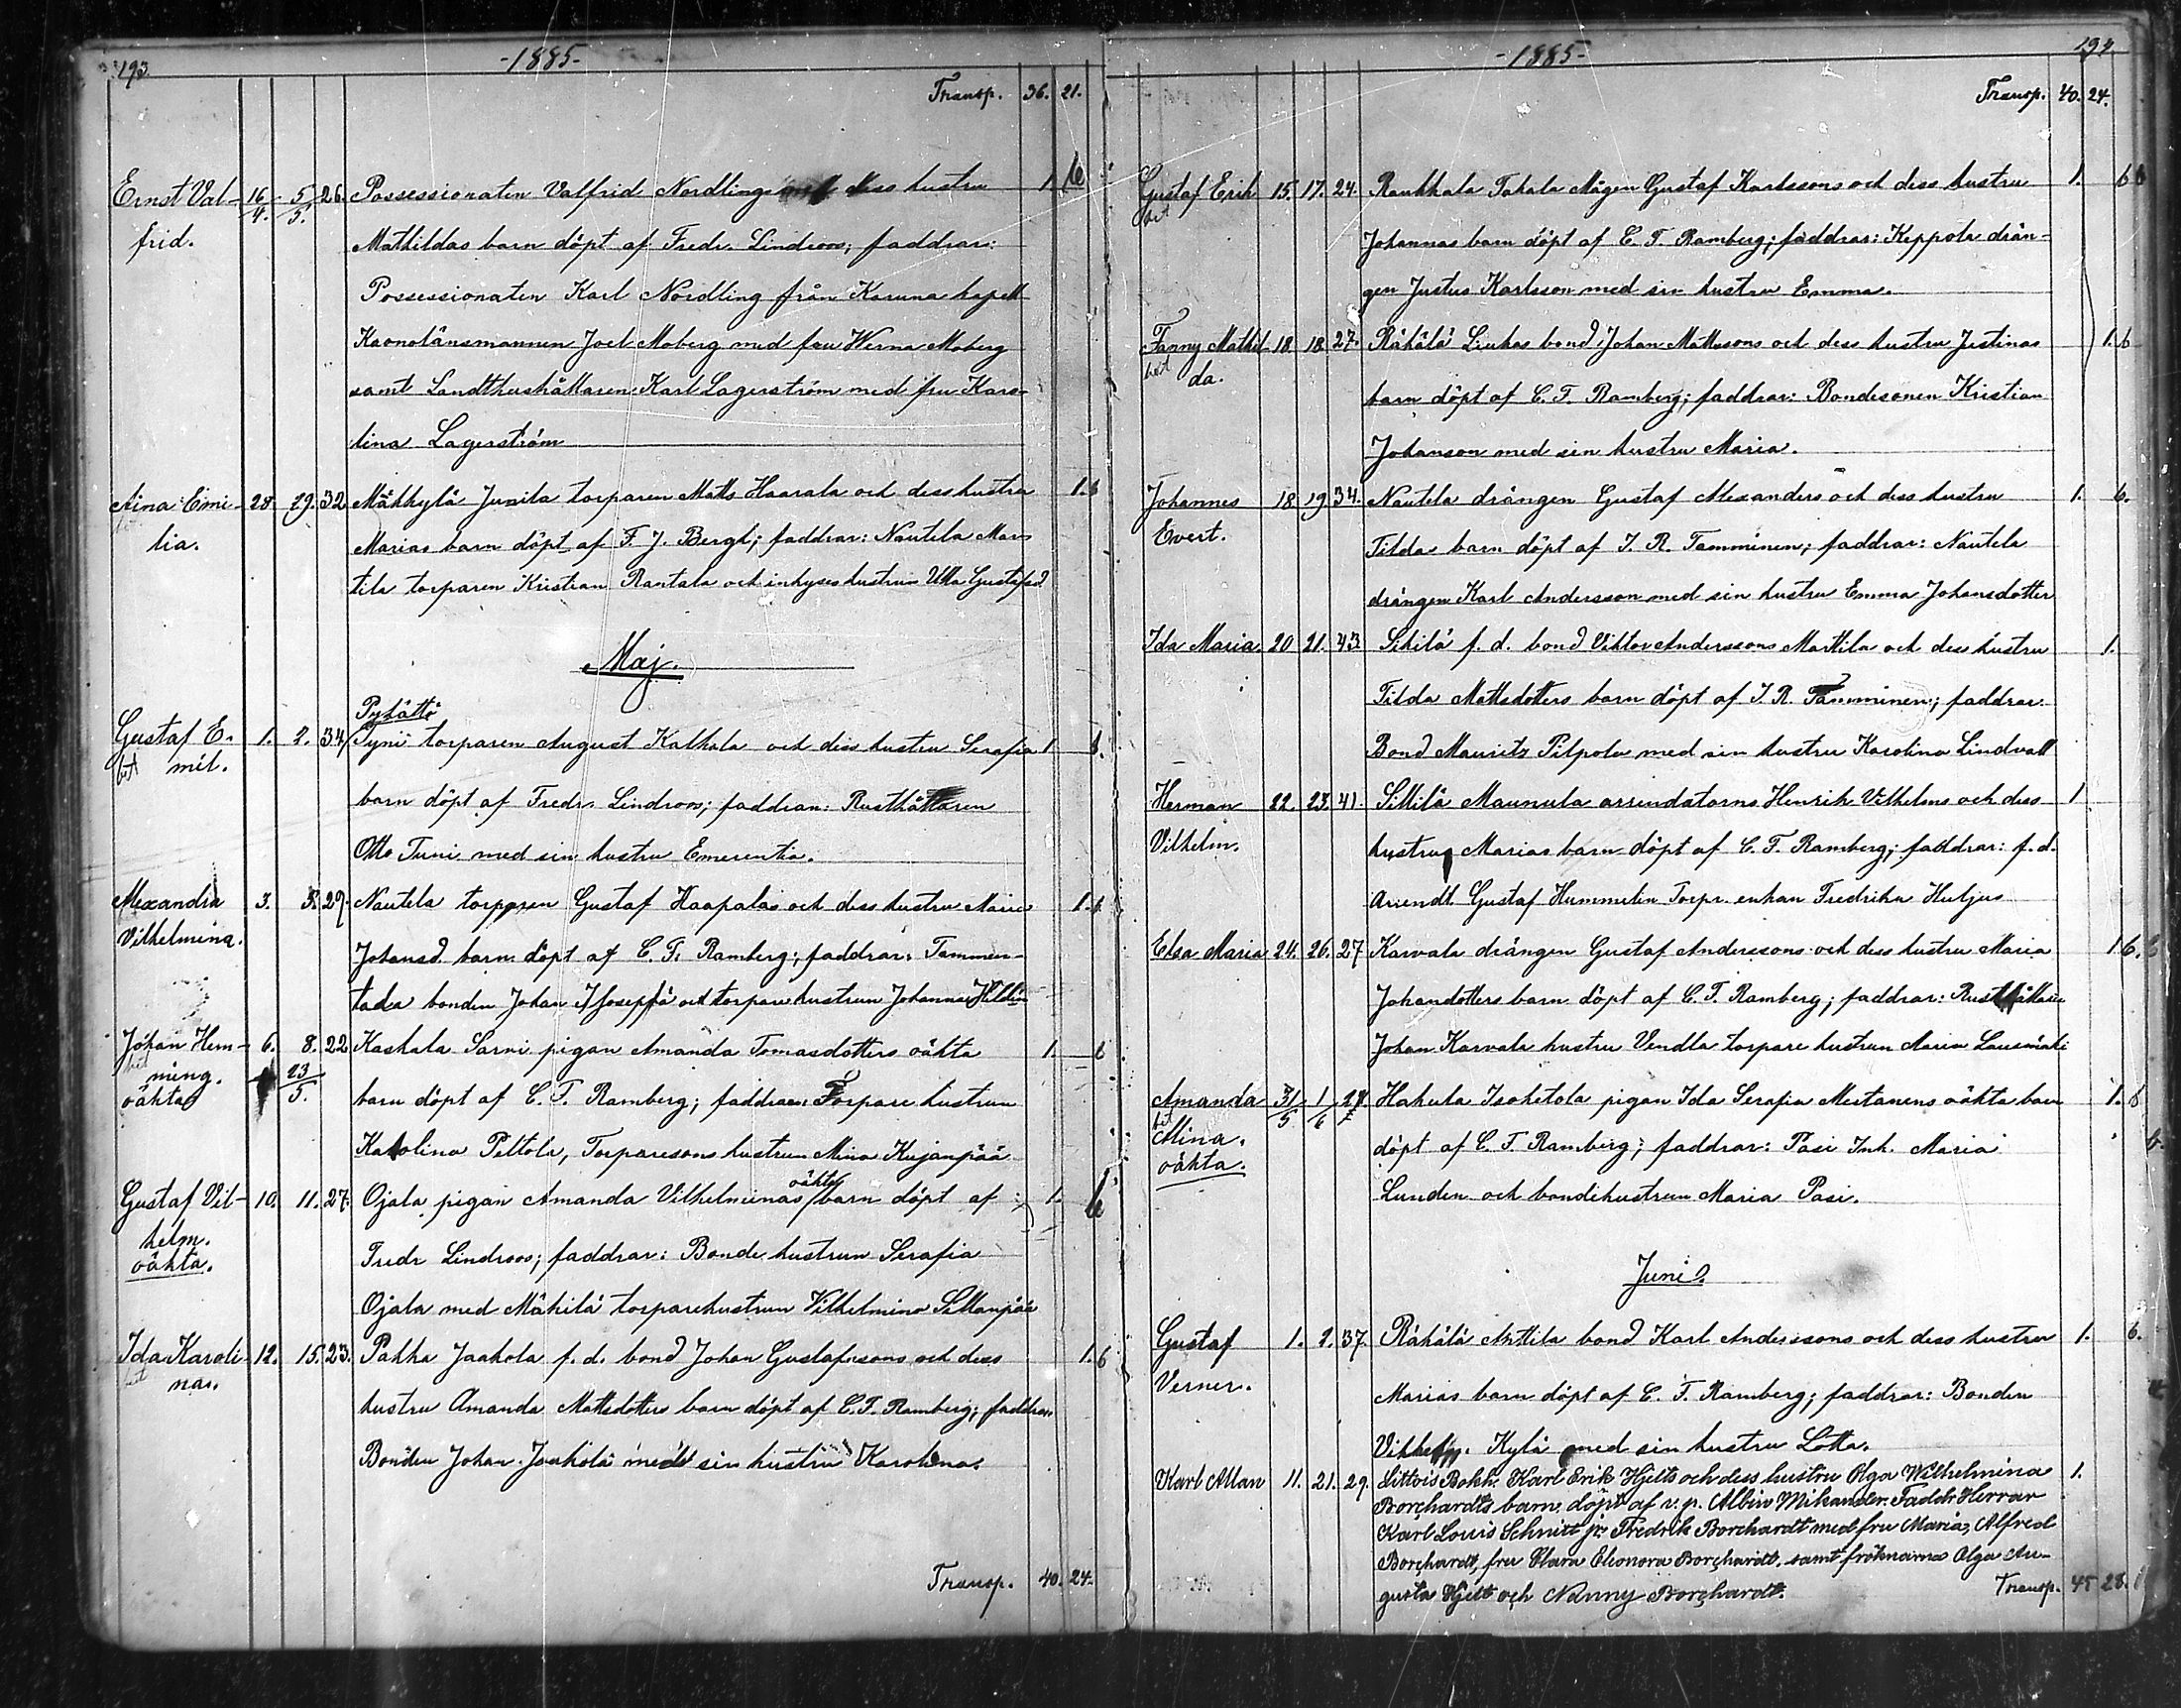 193
-1885-
Transp. 36. 21.
Ernst Val- 16/4. 5/5. 26. Possessionaten Valfrid Nordlings och dess hustru 1. 6
frid. Mathildas barn döpt af Fredr. Lindroos; faddrar:
Possessionaten Karl Nordling från Karuna kapell
Kronolänsmannen Joel Moberg med fru Werna Moberg
samt Landthushållaren Karl Lagerström med fru Karo-
lina Lagerström
Aina Emi- 28. 29. 32 Mäkkylä Junila torparen Matts Haarala och dess hustru 1. 6
lia. Marias barn döpt af F. J. Bergh; faddrar: Nautela Mar-
tila torparen Kristian Rantala och inhyses hustrun Ulla Gustafsd
Maj.
Pyhältö
Gustaf E- 1. 2. 34 Tyni torparen August Kalkala och dess hustru Serafia 1. 6.
bet mil. barn döpt af Fredr. Lindroos; faddrar: Rusthållaren
Otto Tuni med sin hustru Emerentia.
Alexandra 3. 5. 29. Nautela torparen Gustaf Haapalas och dess hustru Maria 1. 6
Vilhelmina. Johansd. barn döpt af C. F. Ramberg; faddrar: Tammen-
taka bonden Johan Joseppä och torpare hustrun Johanna Heldin
Johan Hem- 6. 8. 22 Kaskala Sarvi pigan Amanda Tomasdotters oäkta 1. 6
ming. 23/5. barn döpt af C. F. Ramberg; faddrar: Torpare hustrun
oäkta Karolina Peltola, Torparesons hustrun Mina Kujanpää
oäkta
Gustaf Vil- 10. 11. 27. Ojala pigan Amanda Vilhelminas barn döpt af 1. 6
helm. Fredr Lindroos; faddrar: Bonde hustrun Serafia
oäkta. Ojala med Mäkilä torparehustrun Vilhelmina Sillanpää
Ida Karoli- 12. 15. 23. Pakka Jaakola f. d. bond Johan Gustafssons och dess 1. 6
bet na. hustru Amanda Mattsdotters barn döpt af C. F. Ramberg; faddrar
Bonden Johan Jaakola med sin hustru Karolina.
Transp. 40. 24.
-1885-
194
Transp. 40. 24.
Gustaf Erik 15. 17. 24. Raukkala Tahala Mågen Gustaf Karlssons och dess hustru 1. 6
bet Johannas barn döpt af C. F. Ramberg; faddrar: Keppola drän-
gen Justus Karlsson med sin hustru Emma.
Fanny Mathil- 18. 18. 27. Rähälä Liukas bond Johan Mattssons och dess hustru Justinas 1. 6
bet da. barn döpt af C. F. Ramberg; faddrar: Bondesonen Kristian
Johanson med sin hustru Maria.
Johannes 18. 19. 34. Nautela drängen Gustaf Alexanders och dess hustru 1. 6.
Evert. Tildas barn döpt af J. R. Tamminen; faddrar: Nautela
drängen Karl Andersson med sin hustru Emma Johansdotter
Ida Maria 20 21. 43 Sikilä f. d. bond Viktor Anderssons Marttila och dess hustru 1.
Tilda Mattsdotters barn döpt af J. R. Tamminen; faddrar:
Bond Maurits Pilpola med sin hustru Karolina Lindvall
Herman 22. 23. 41. Sillilä Maunula arrendatorns Henrik Vilhelms och dess 1
Vilhelm. hustrus Marias barn döpt af C. F. Ramberg; faddrar: f. d.
Arrendt. Gustaf Hummelin Torpr. enkan Fredrika Huljus
Elsa Maria 24. 26. 27 Karvala drängen Gustaf Anderssons och dess hustru Maria 1. 6.
Johandotters barn döpt af C. F. Ramberg; faddrar: Rusthållare
Johan Karvala hustru Vendla torpare hustrun Maria Lausmäki
Amanda 31/5 1/6 27. Hakula Isohetola pigan Ida Serafia Mestanens oäkta barn 1. 6
bet Mina. döpt af C. F. Ramberg; faddrar: Pasi Inh. Maria
oäkta. Lunden och bondehustrun Maria Pasi.
Juni.
Gustaf 1. 2. 37. Rähälä Anttila bond Karl Anderssons och dess hustru 1. 6.
Verner. Marias barn döpt af C. F. Ramberg; faddrar: Bonden
Vilhelm. Kylä med sin hustru Lotta.
Karl Allan 11. 21. 29. Littois Bokh. Karl Erik Hjelts och dess hustru Olga Wilhelmina 1.
Borchardts barn döpt af v. p. Albin Mikander. Faddr Herrar
Karl Louis Schnitt jr. Fredrik Borchardt med fru Maria, Alfred
Borchardt, fru Clara Eleonora Borchardt, samt fröknarna Olga Au-
gusta Hjelt och Nanny Borchardt. Transp. 45 28.